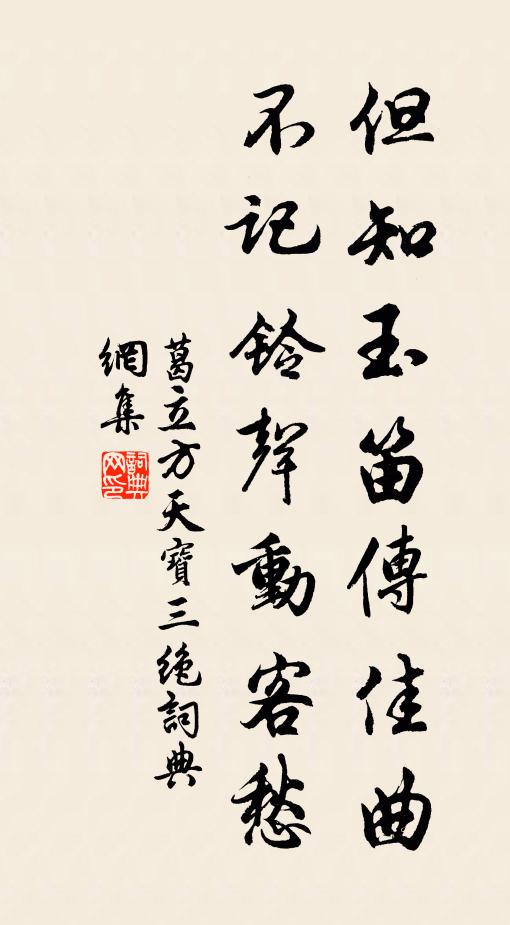 但知玉笛傳佳曲
不記鈴聲動客愁
葛立方天寶三絶詞典
網集
詞典網印